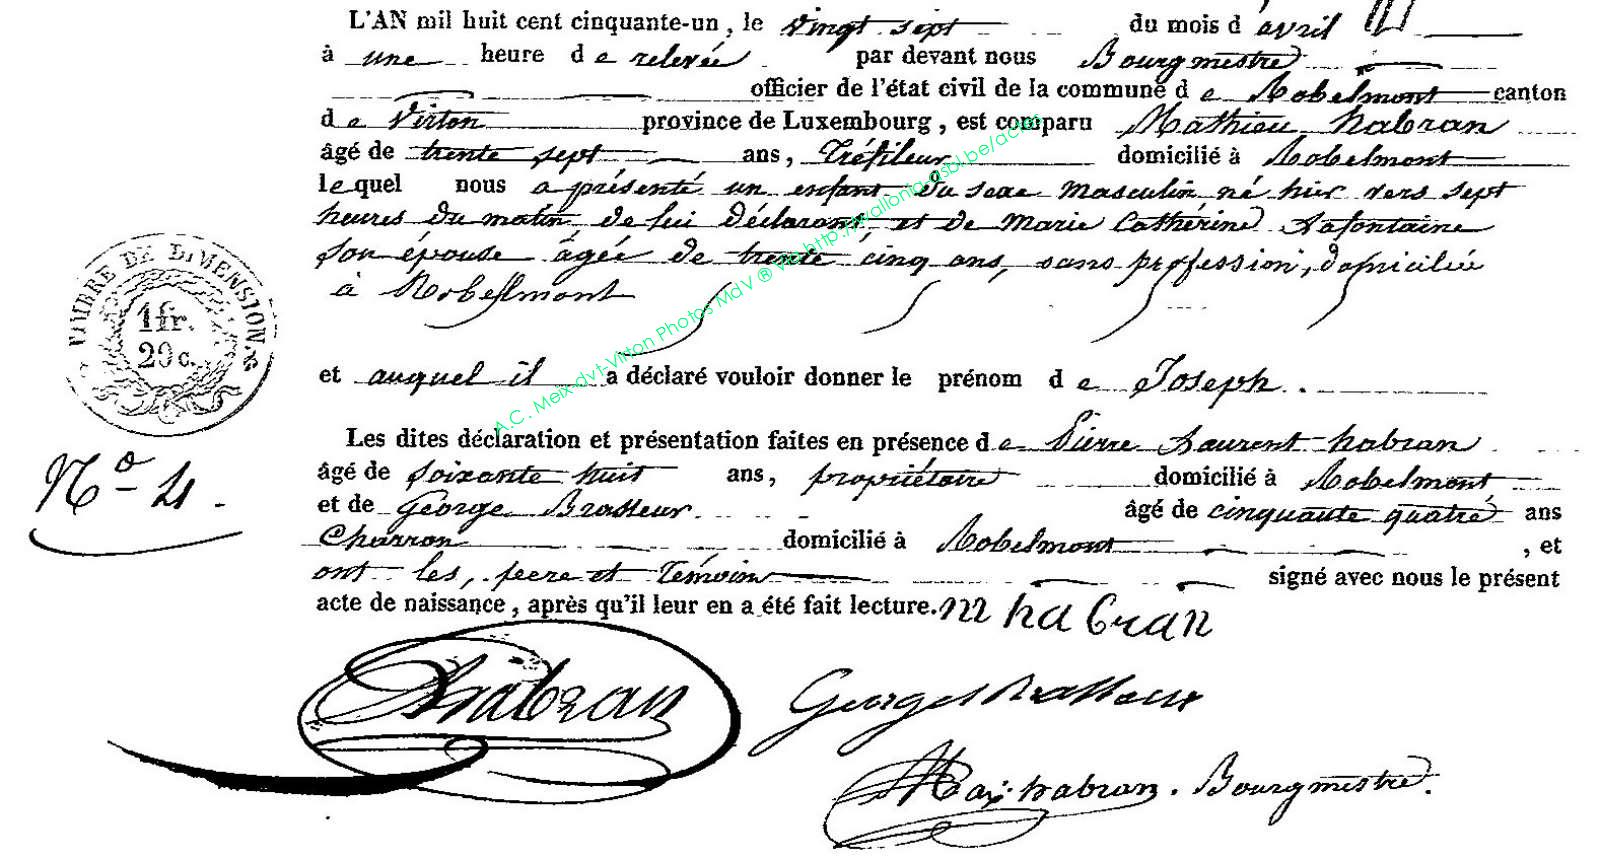 L'AN mil huit cent cinquante-un, le vingt sept du mois d'avril
à une heure de relevée par devant nous Bourgmestre
officier de l'état civil de la commune de Robelmont canton
de Virton province de Luxembourg, est comparu Mathieu habran
âgé de trente sept ans, Tréfileur domicilié à Robelmont
lequel nous a présenté un enfant du sexe masculin né hier vers sept
heures du matin de lui déclarant et de Marie Catherine Lafontaine
son épouse âgée de trente cinq ans, sans profession, domiciliée
à Robelmont
TIMBRE DE DIMENSION.
1 fr.
20 c.
et auquel il a déclaré vouloir donner le prénom de Joseph.
Les dites déclaration et présentation faites en présence de Pierre Laurent habran
N° 4.
âgé de soixante huit ans, propriétaire domicilié à Robelmont
et de George Brasseur âgé de cinquante quatre ans
Charron domicilié à Robelmont, et
ont les, peere et Témoin signé avec nous le présent
acte de naissance, après qu'il leur en a été fait lecture. m habran
habran
Georges Brasseur
Max habran. Bourgmestre.
A.C. Meix-dvt-Virton Photos MdV ® via http://wallonia-asbl.be/actes